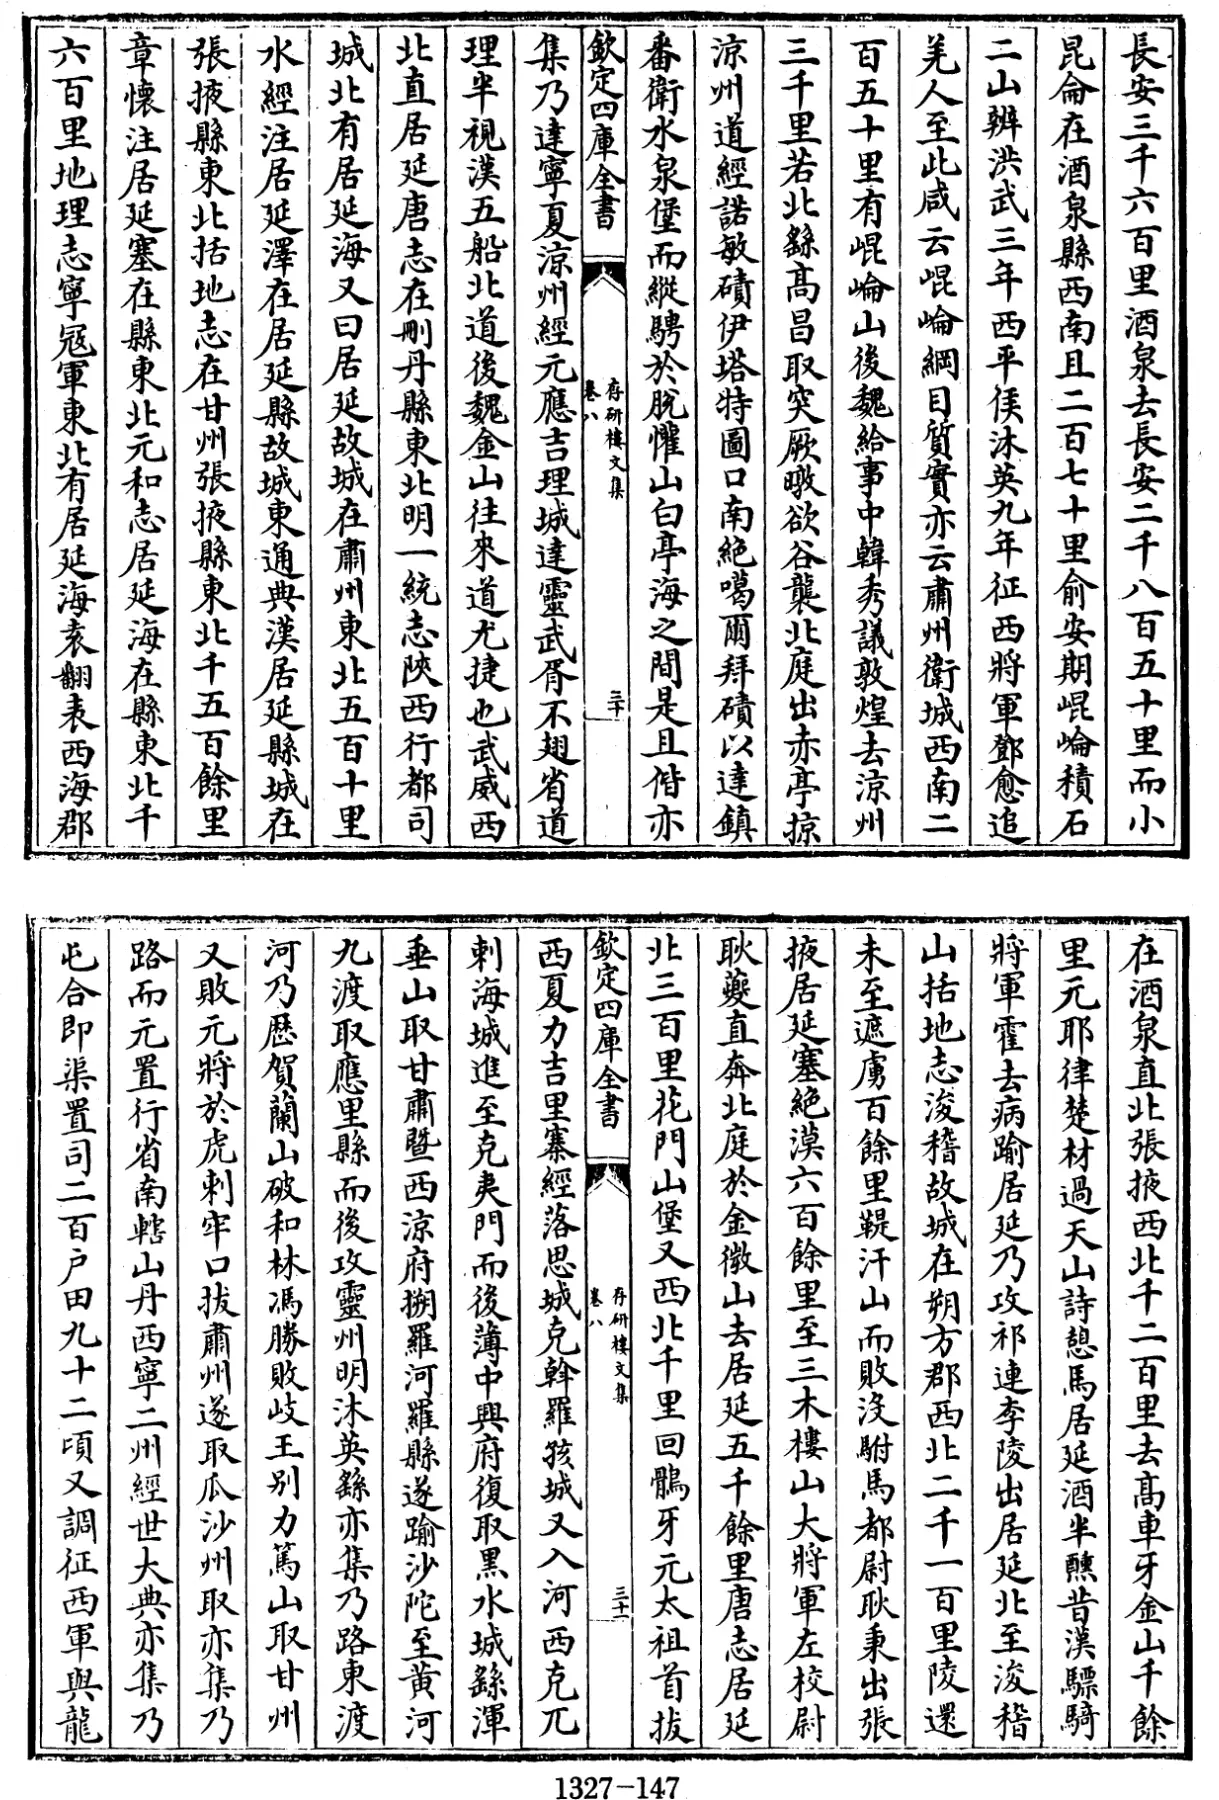 長安三千六百里酒泉去長安二千八百五十里而小
昆侖在酒泉縣西南且二百七十里俞安期崐崘積石
二山辨洪武三年西平侯沐英九年征西將軍鄧愈追
羌人至此咸云崐崘綱目質實亦云肅州衛城西南二
百五十里有崐崘山後魏給事中韓秀議敦煌去涼州
三千里若北繇髙昌取突厥暾欲谷襲北庭出赤亭掠
涼州道經諾敏磧伊塔特圖口南絶噶爾拜磧以達鎮
番衛水泉堡而縱騁於脫懼山白亭海之間是且偕亦
欽定四庫全書
存研樓文集
卷八
三十
集乃達寧夏涼州經元應吉理城達靈武胥不翅省道
理半視漢五船北道後魏金山往來道尤捷也武威西
北直居延唐志在刪丹縣東北明一統志陝西行都司
城北有居延海又曰居延故城在肅州東北五百十里
水經注居延澤在居延縣故城東通典漢居延縣城在
張掖縣東北括地志在甘州張掖縣東北千五百餘里
章懷注居延塞在縣東北元和志居延海在縣東北千
六百里地理志寧冦軍東北有居延海袁翻表西海郡
在酒泉直北張掖西北千二百里去髙車牙金山千餘
里元耶律楚材過天山詩憩馬居延酒半醺昔漢驃騎
將軍霍去病踰居延乃攻祁連李陵出居延北至浚稽
山括地志浚稽故城在朔方郡西北二千一百里陵還
未至遮虜百餘里鞮汗山而敗没駙馬都尉耿秉出張
掖居延塞絶漠六百餘里至三木樓山大將軍左校尉
耿夔直奔北庭於金微山去居延五千餘里唐志居延
北三百里花門山堡又西北千里回鶻牙元太祖首拔
欽定四庫全書
存研樓文集
卷八
三十一
西夏力吉里寨經落思城克斡羅孩城又入河西克兀
剌海城進至克夷門而後薄中興府復取黑水城繇渾
垂山取甘肅暨西涼府搠羅河羅縣遂踰沙陀至黄河
九渡取應里縣而後攻靈州明沐英繇亦集乃路東渡
河乃歴賀蘭山破和林馮勝敗岐王别力篤山取甘州
又敗元將於虎剌牢口拔肅州遂取瓜沙州取亦集乃
路而元置行省南轄山丹西寧二州經世大典亦集乃
屯合即渠置司二百户田九十二頃又調征西軍與龍
1327-147